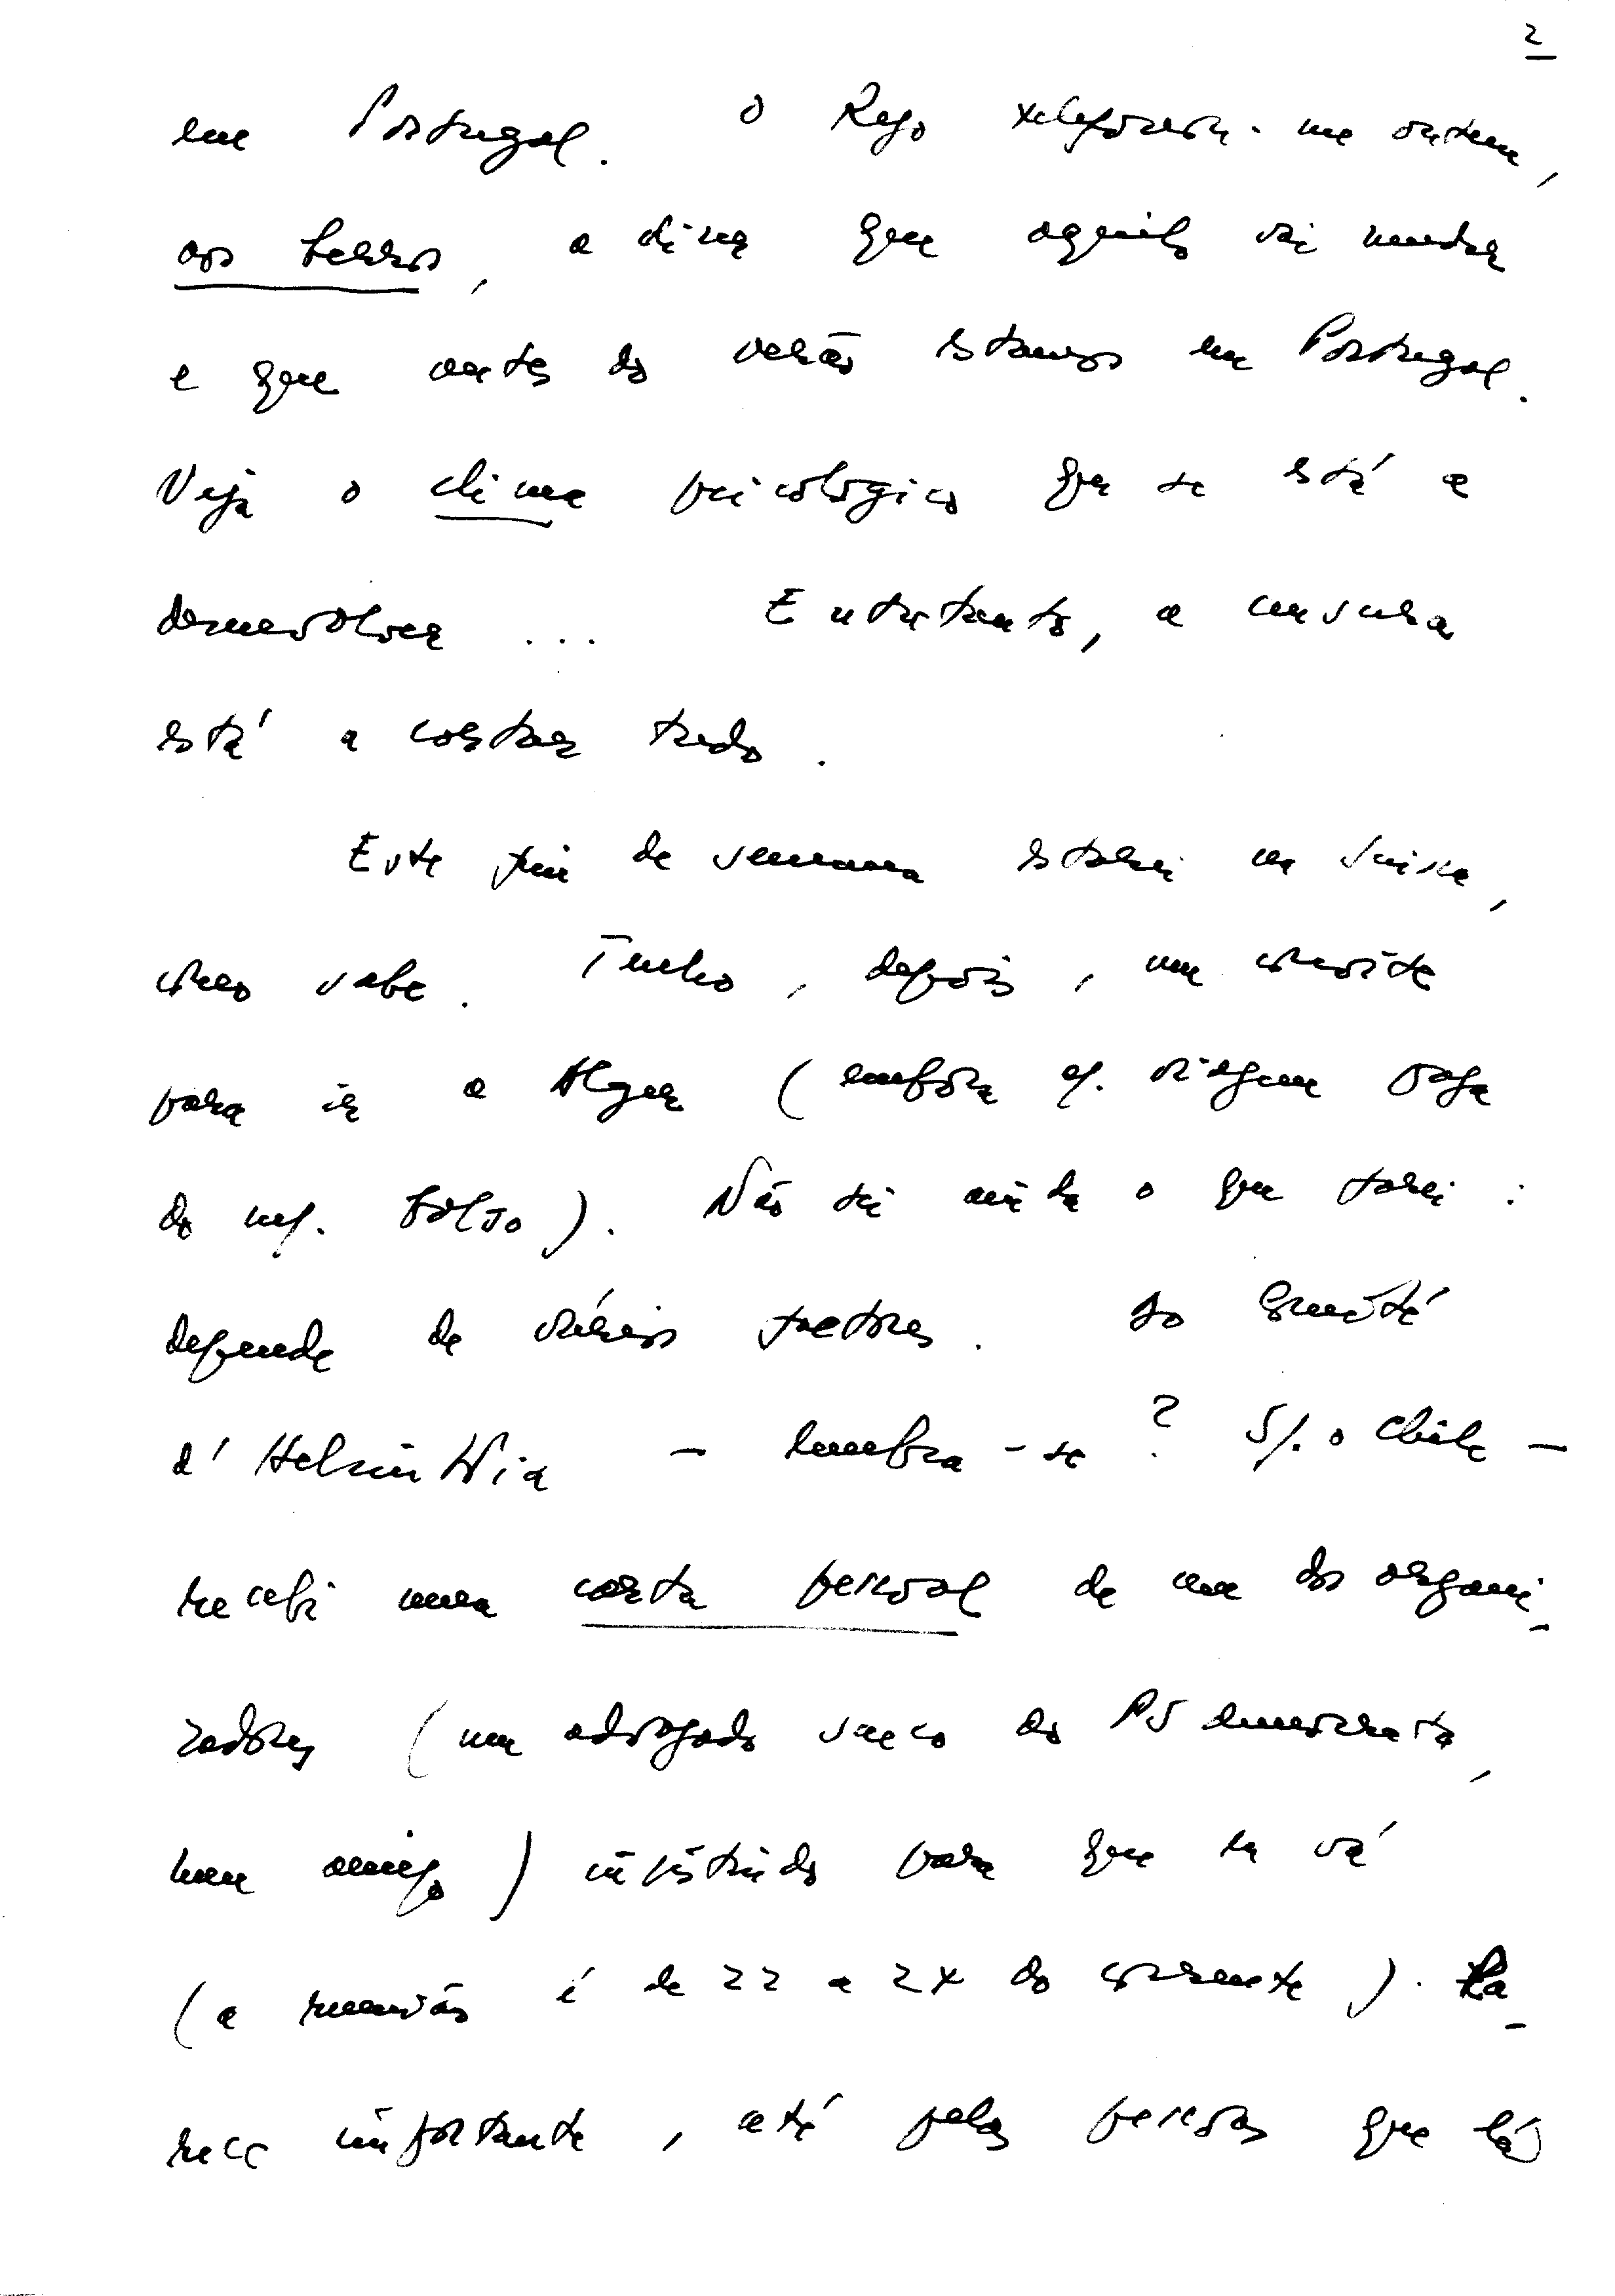 2
em Portugal. O Rego telefonou-me ontem,
aos berros, a dizer que aquilo vai mudar
e que antes do verão estamos em Portugal.
Veja o clima psicologico que se está a
desenvolver ... Entretanto, a censura
está a cortar tudo.
Este fim de semana estarei na Suissa,
como sabe. Tenho, depois, um convite
para ir a Alger (embora c/. viagem paga
do m/. bolso). Não sei ainda o que farei:
depende de vários factores. Do Comité
d'Helsinkia - lembra-se? S/. o Chile -
recebi uma carta pessoal de um dos organi-
zadores (um advogado sueco do PS democrata,
meu amigo) insistindo para que eu vá
(a reunião é de 22 a 24 do corrente). Pa-
rece importante, até pelas pessoas que lá